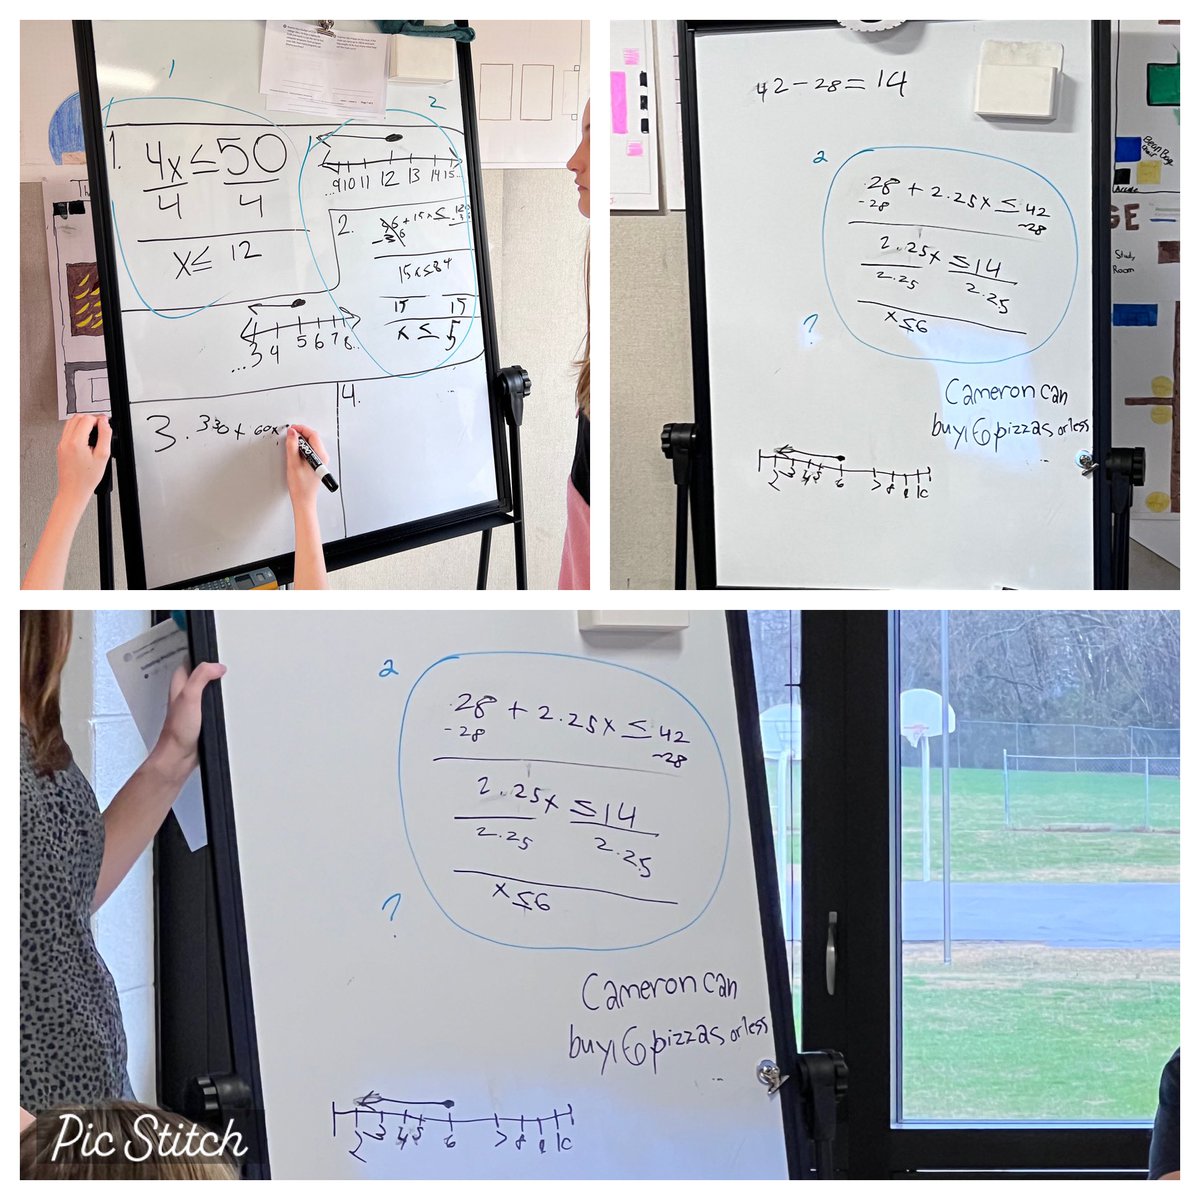 1
2
1.
4x ≤ 50
4 4
x ≤ 12
...9 10 11 12 13 14 15...
2.
+ 15x ≤
15x ≤ 84
15 15
x ≤ 5
...3 4 5 6 7 8...
3. 330 + 60x
4.
42 - 28 = 14
2
28 + 2.25x ≤ 42
-28 -28
2.25x ≤ 14
2.25 2.25
x ≤ 6
?
Cameron can
buy 6 pizzas or less
2 3 4 5 6 7 8 9 10
Study
Room
2
28 + 2.25x ≤ 42
-28 -28
2.25x ≤ 14
2.25 2.25
x ≤ 6
?
Cameron can
buy 6 pizzas or less
2 3 4 5 6 7 8 9 10
Pic Stitch